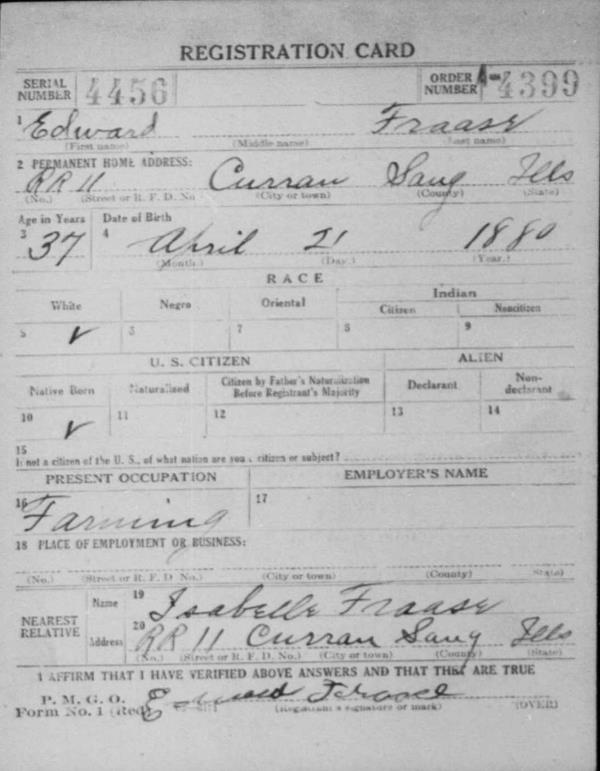 REGISTRATION CARD
SERIAL NUMBER 4456 ORDER NUMBER A-4399
1 Edward Fraase
(First name) (Middle name) (Last name)
2 PERMANENT HOME ADDRESS:
RR 11 Curran Sang Ills
(No.) (Street or R. F. D. No.) (City or town) (County) (State)
Age in Years Date of Birth
3 37 4 April 21 1880
(Month.) (Day.) (Year.)
RACE
White Negro Oriental Indian
Citizen Noncitizen
5 ✓ 6 7 8 9
U. S. CITIZEN ALIEN
Native Born Naturalized Citizen by Father's Naturalization Before Registrant's Majority Declarant Non-declarant
10 ✓ 11 12 13 14
15
If not a citizen of the U. S., of what nation are you a citizen or subject?
PRESENT OCCUPATION EMPLOYER'S NAME
16 Farming 17
18 PLACE OF EMPLOYMENT OR BUSINESS:
(No.) (Street or R. F. D. No.) (City or town) (County) (State)
NEAREST RELATIVE Name 19 Isabelle Fraase
Address 20 RR 11 Curran Sang Ills
(No.) (Street or R. F. D. No.) (City or town) (County) (State)
I AFFIRM THAT I HAVE VERIFIED ABOVE ANSWERS AND THAT THEY ARE TRUE
P. M. G. O.
Form No. 1 (Red) Edward Fraase
(Registrant's signature or mark) (OVER)